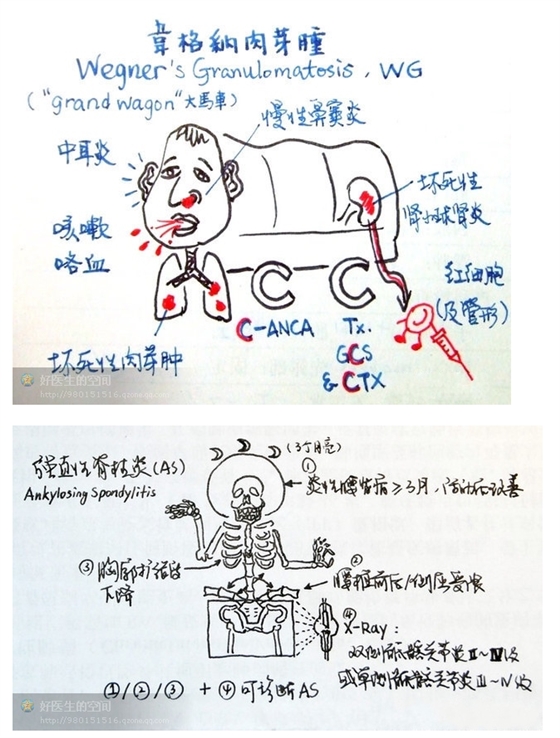 韋格納肉芽腫
Wegner's Granulomatosis, WG
("grand wagon"大馬車)
慢性鼻竇炎
中耳炎
坏死性
肾小球肾炎
咳嗽
咯血
红细胞
(及管形)
C-ANCA
Tx.
GCS
& CTX
坏死性肉芽肿
好医生的空间
http://980151516.qzone.qq.com
强直性脊柱炎(AS)
Ankylosing Spondylitis
(3个月亮)
① 炎性腰背痛≥3月,活动后改善
③ 胸廓扩张度
下降
②
腰椎前后/侧屈受限
④
X-Ray:
双侧骶髂关节炎Ⅱ~Ⅳ级
或单侧骶髂关节炎Ⅲ~Ⅳ级
①/②/③ + ④可诊断AS
好医生的空间
http://980151516.qzone.qq.com